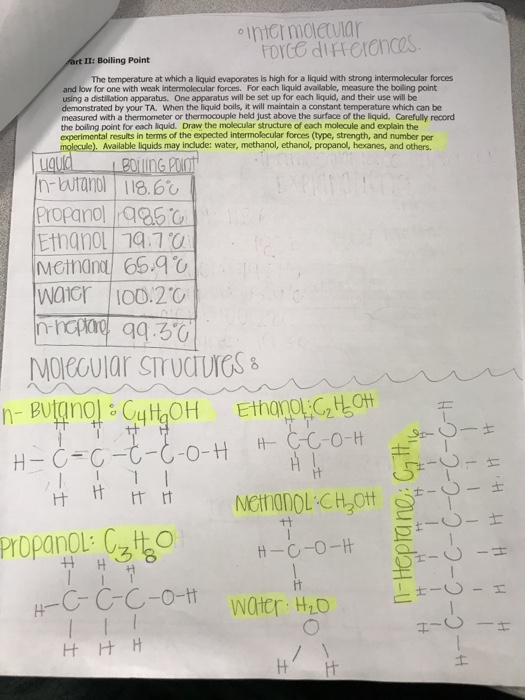 °intermolecular
force differences.
art II: Boiling Point
The temperature at which a liquid evaporates is high for a liquid with strong intermolecular forces
and low for one with weak intermolecular forces. For each liquid available, measure the boiling point
using a distillation apparatus. One apparatus will be set up for each liquid, and their use will be
demonstrated by your TA. When the liquid boils, it will maintain a constant temperature which can be
measured with a thermometer or thermocouple held just above the surface of the liquid. Carefully record
the boiling point for each liquid. Draw the molecular structure of each molecule and explain the
experimental results in terms of the expected intermolecular forces (type, strength, and number per
molecule). Available liquids may include: water, methanol, ethanol, propanol, hexanes, and others.
Liquid Boiling Point
n-butanol 118.6°C
Propanol 98.5°C
Ethanol 79.7°C
Methanol 65.9°C
Water 100.2°C
n-heptane 99.3°C
Molecular structures:
n-Butanol: C4H9OH
H H H H
H-C-C-C-C-O-H
H H H H
Propanol: C3H8O
H H H
H-C-C-C-O-H
H H H
Ethanol: C2H5OH
H H
H C-C-O-H
H H
Methanol: CH3OH
H
H-C-O-H
H
Water: H2O
O
H H
n-Heptane: C7H16
H H H H H H H
H-C-C-C-C-C-C-C-H
H H H H H H H